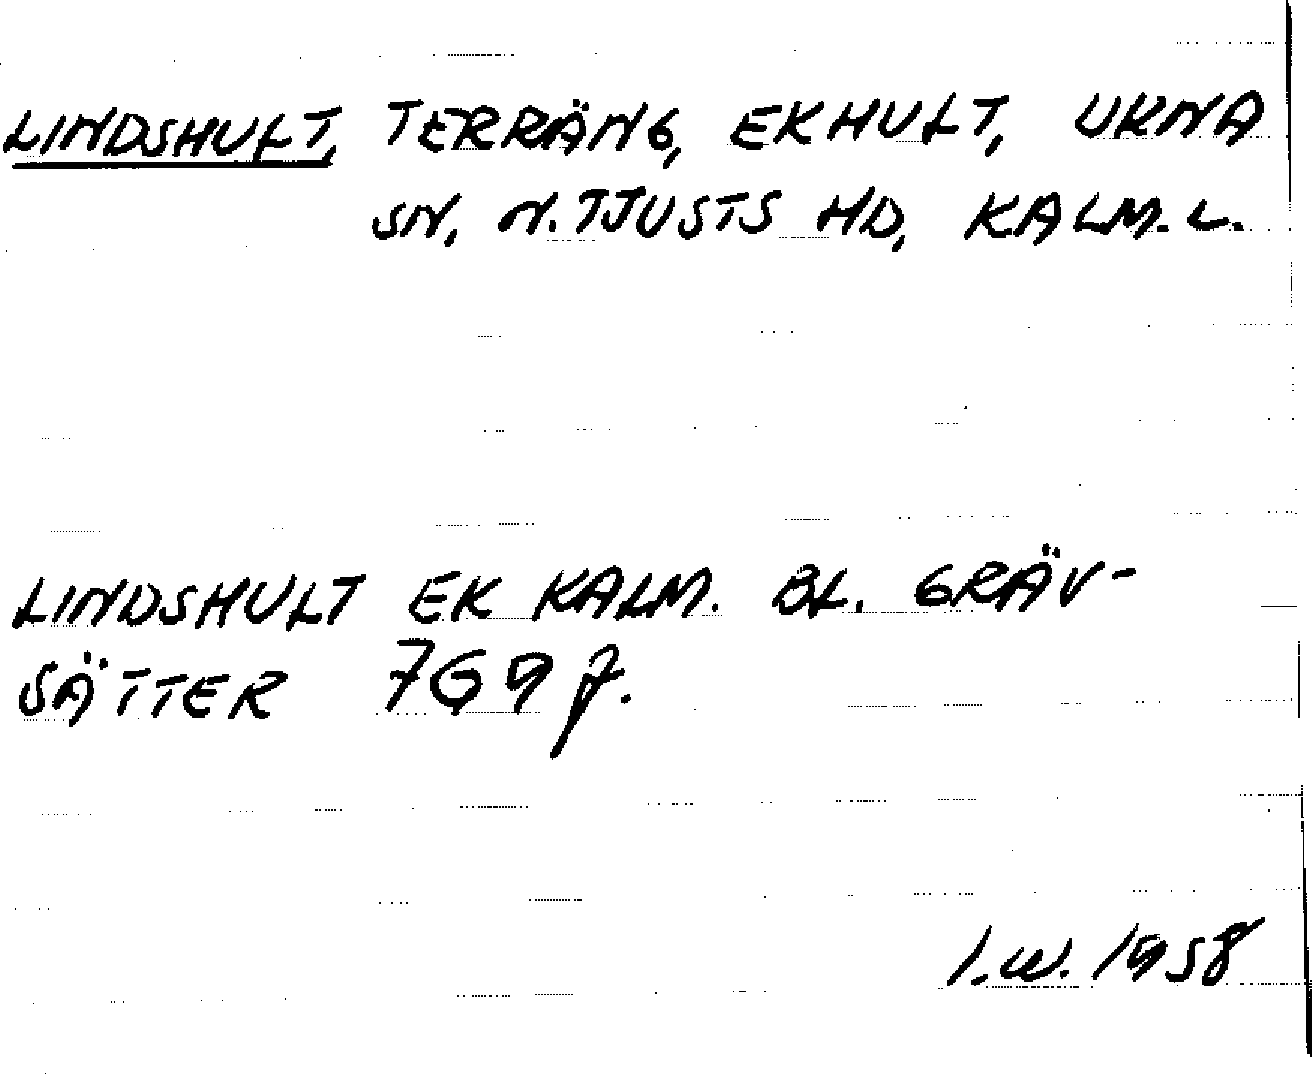 LINDSHULT, TERRÄNG, EKHULT, UKNA
SN, N. TJUSTS HD, KALM. L.
LINDSHULT EK KALM. BL. GRÄV-
SÄTTER 769 f.
I.W. 1958